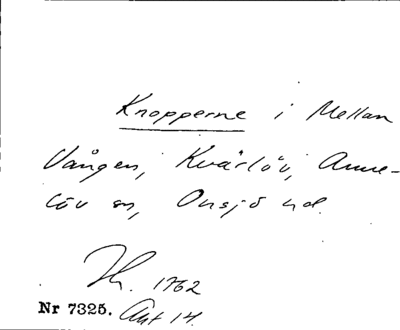 Knopperne i Mellan
Vången, Kvärlöv, Anne-
löv sn, Onsjö hd.
Jh. 1762
Nr 7325. Akt 14.